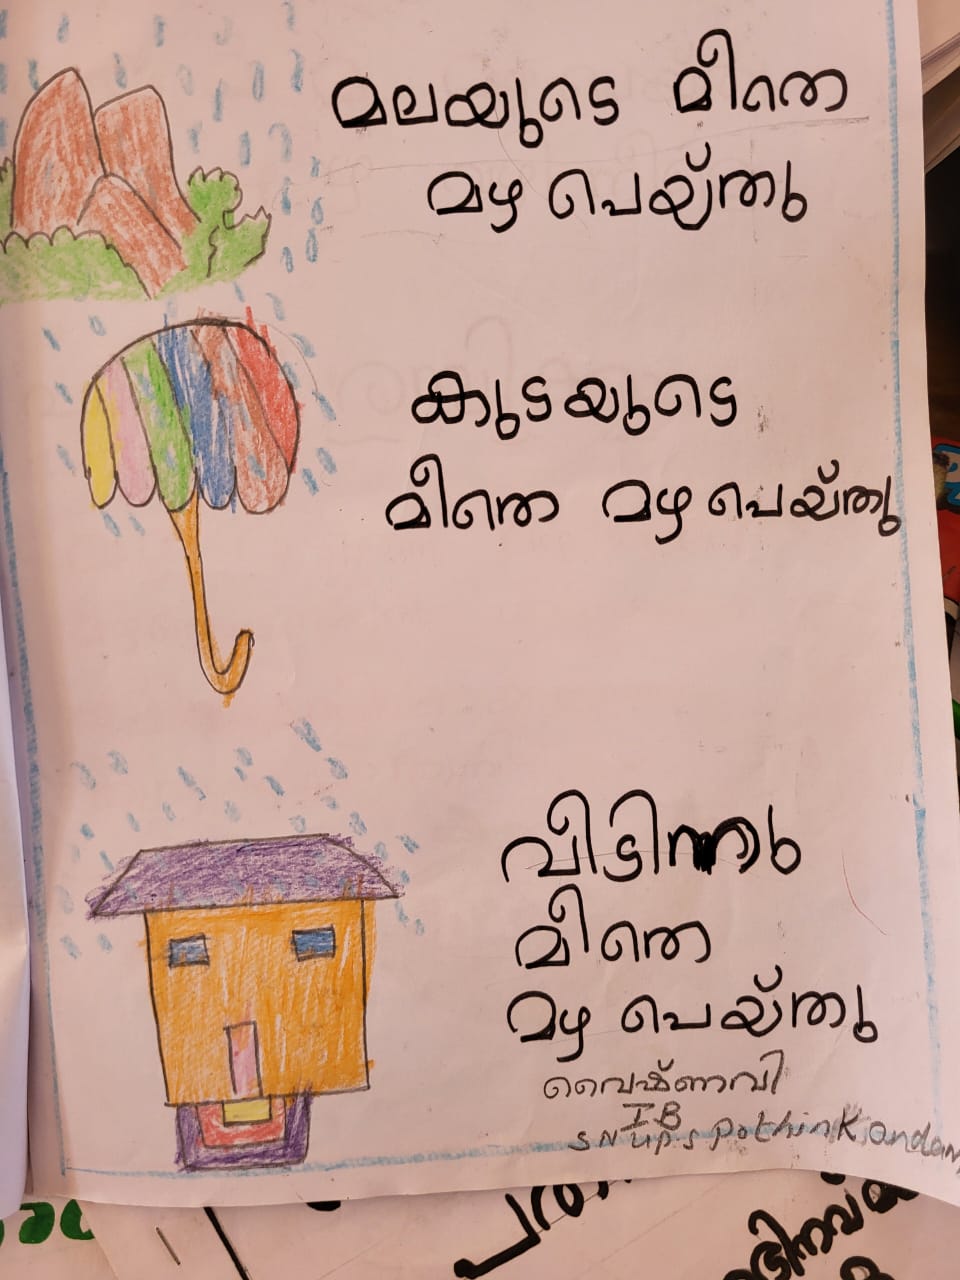 മലയുടെ മീതെ
മഴ പെയ്തു
കുടയുടെ
മീതെ മഴ പെയ്തു
വീടിന്നു
മീതെ
മഴ പെയ്തു
വൈഷ്ണവി
I B
S N UP.S Pothinkandam